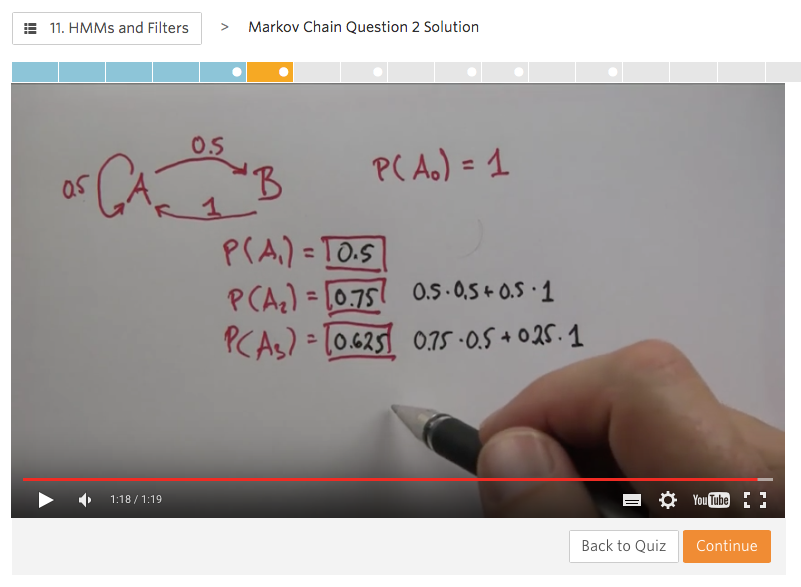 11. HMMs and Filters > Markov Chain Question 2 Solution
0.5
P(A₀) = 1
0.5 A B
1
P(A₁) = 0.5
P(A₂) = 0.75 0.5·0.5+0.5·1
P(A₃) = 0.625 0.75·0.5+0.25·1
1:18 / 1:19
YouTube
Back to Quiz Continue